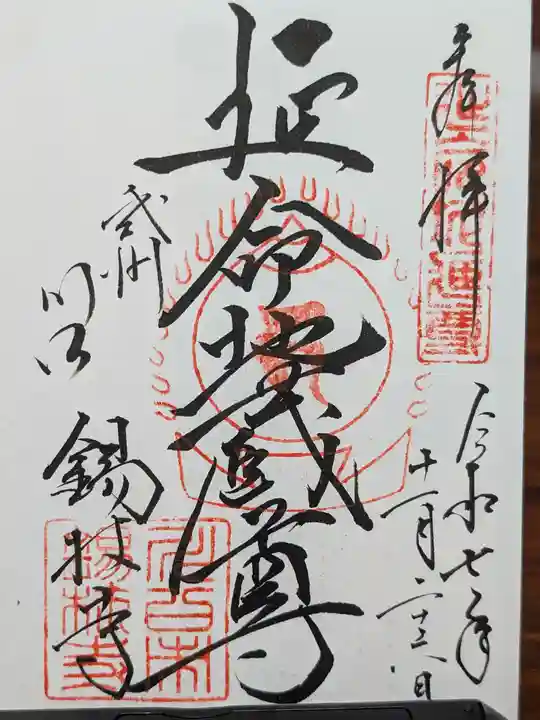 奉拝
令和七年
十一月二十三日
延命地蔵尊
武州
川口
錫杖寺